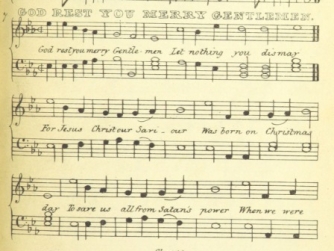 GOD REST YOU MERRY GENTLEMEN.
God rest you merry Gentle-men Let nothing you dismay
For Jesus Christ our Savi-our Was born on Christmas
day To save us all from Satan's power When we were